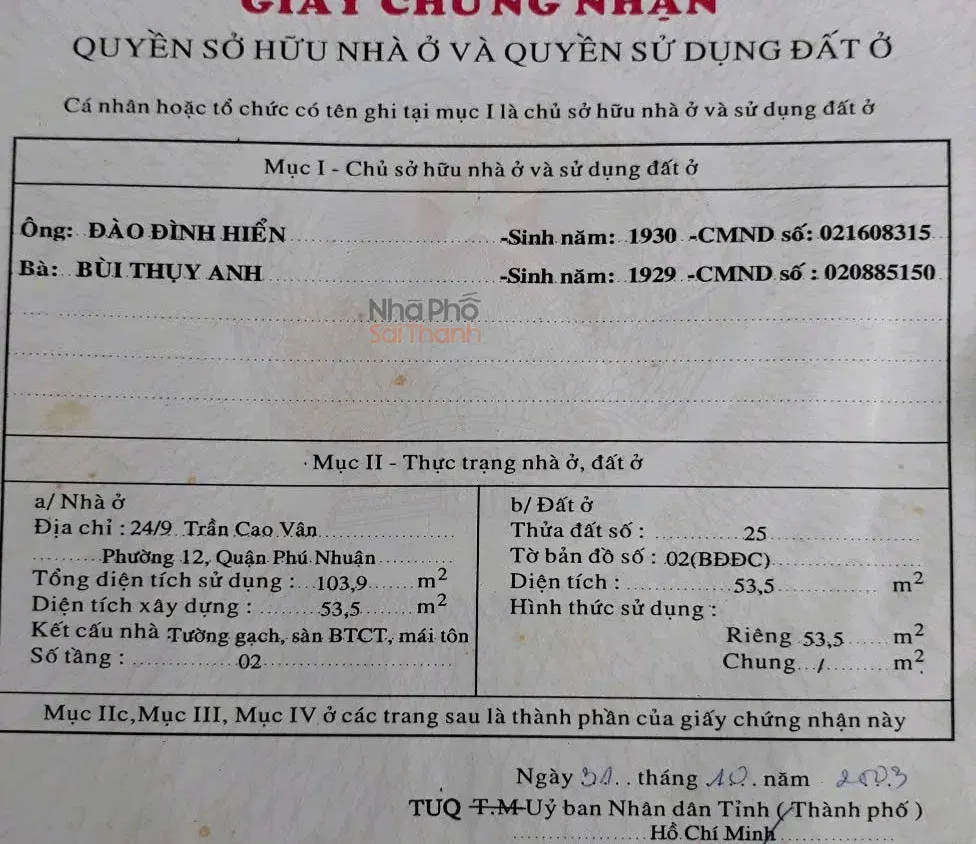 GIẤY CHỨNG NHẬN
QUYỀN SỞ HỮU NHÀ Ở VÀ QUYỀN SỬ DỤNG ĐẤT Ở
Cá nhân hoặc tổ chức có tên ghi tại mục I là chủ sở hữu nhà ở và sử dụng đất ở
Mục I - Chủ sở hữu nhà ở và sử dụng đất ở
Ông: ĐÀO ĐÌNH HIỂN -Sinh năm: 1930 -CMND số: 021608315
Bà: BÙI THỤY ANH -Sinh năm: 1929 -CMND số : 020885150
Nhà Phố
Sài Thành
Mục II - Thực trạng nhà ở, đất ở
a/ Nhà ở
Địa chỉ : 24/9 Trần Cao Vân
Phường 12, Quận Phú Nhuận
Tổng diện tích sử dụng : 103,9 m2
Diện tích xây dựng : 53,5 m2
Kết cấu nhà Tường gạch, sàn BTCT, mái tôn
Số tầng : 02
b/ Đất ở
Thửa đất số : 25
Tờ bản đồ số : 02(BĐĐC)
Diện tích : 53,5 m2
Hình thức sử dụng :
Riêng 53,5 m2
Chung / m2
Mục IIc,Mục III, Mục IV ở các trang sau là thành phần của giấy chứng nhận này
Ngày 31 tháng 10 năm 2003
TUQ T.M Uỷ ban Nhân dân Tỉnh (Thành phố )
Hồ Chí Minh